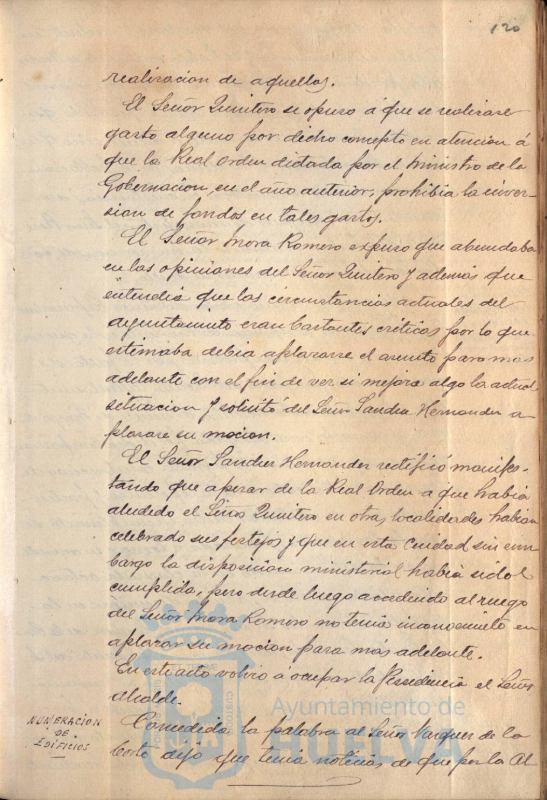 120
realizacion de aquellos.
El Señor Quintero se opuso á que se realizase
gasto alguno por dicho concepto en atencion á
que la Real Orden dictada por el Ministro de la
Gobernacion, en el año anterior, prohibia la inver-
sion de fondos en tales gastos.
El Señor Mora Romero expuso que abundaba
en las opiniones del Señor Quintero y además que
entendia que las circunstancias actuales del
ayuntamiento eran bastantes criticas por lo que
estimaba debia aplazarse el asunto para más
adelante con el fin de ver si mejora algo la actual
situacion y solicitó del Señor Sanchez Hernandez a-
plazase su mocion.
El Señor Sanchez Hernandez rectificó manifes-
tando que apesar de la Real Orden a que habia
aludido el Señor Quintero en otras localidades habian
celebrado sus festejos y que en esta Ciudad sin em-
bargo la disposicion ministerial habia sido
cumplida, pero desde luego accediendo al ruego
del Señor Mora Romero no tenia inconveniente en
aplazar su mocion para más adelante.
En este acto volvió á ocupar la Presidencia el Señor
Alcalde.
NUMERACION
DE
EDIFICIOS
Concedida la palabra al Señor Vazquez de la
Corte dijo que tenia noticias de que por la Al
Ayuntamiento de
HUELVA